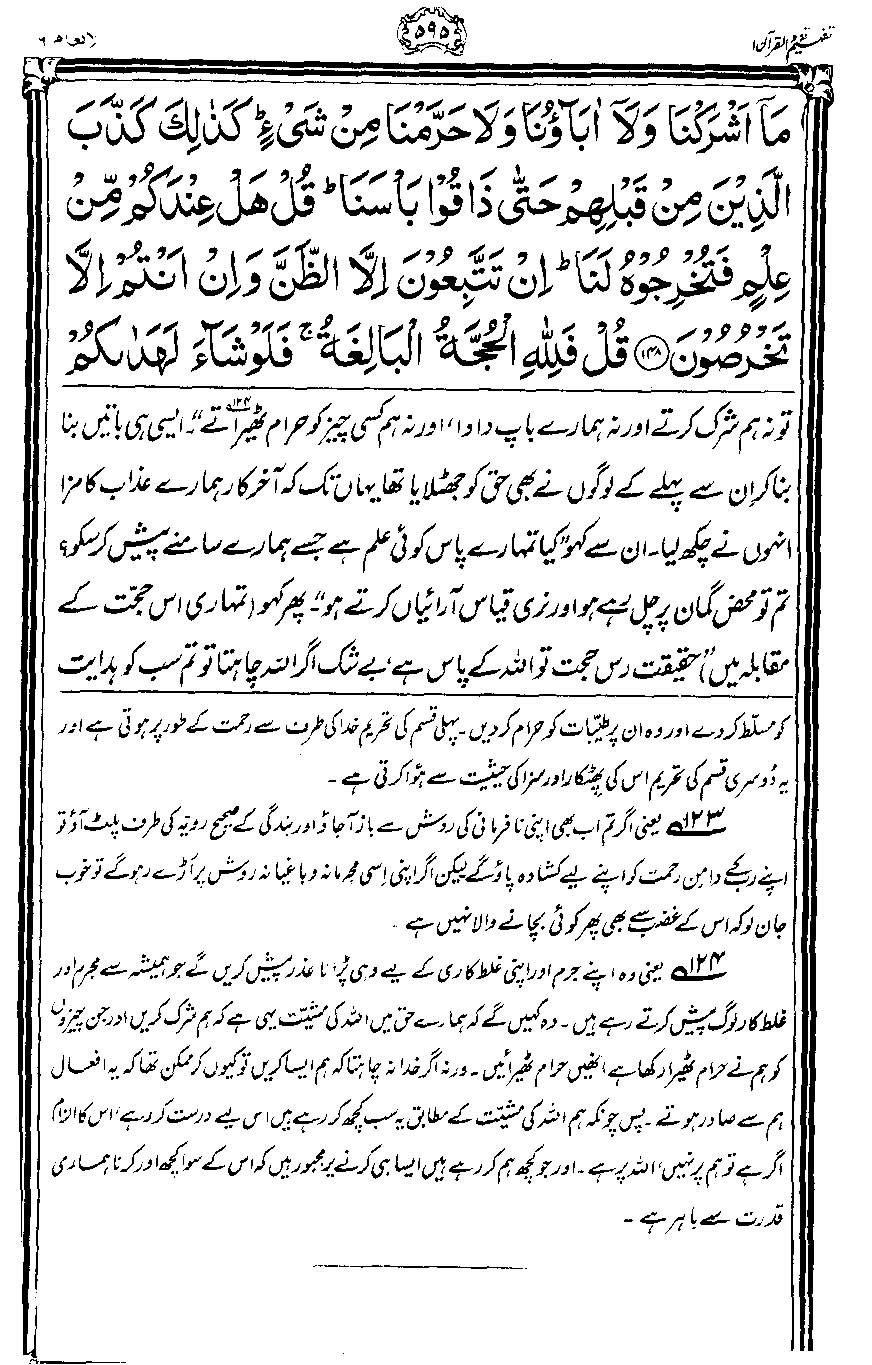 تفہیم القرآن ۱
۵۹۵
الانعام ۶
مَآ اَشْرَكْنَا وَلَآ اٰبَآؤُنَا وَلَا حَرَّمْنَا مِنْ شَيْءٍ ؕ كَذٰلِكَ كَذَّبَ
الَّذِيْنَ مِنْ قَبْلِهِمْ حَتّٰى ذَاقُوْا بَاْسَنَا ؕ قُلْ هَلْ عِنْدَكُمْ مِّنْ
عِلْمٍ فَتُخْرِجُوْهُ لَنَا ؕ اِنْ تَتَّبِعُوْنَ اِلَّا الظَّنَّ وَاِنْ اَنْتُمْ اِلَّا
تَخْرُصُوْنَ ﴿۱۴۸﴾ قُلْ فَلِلّٰهِ الْحُجَّةُ الْبَالِغَةُ ۚ فَلَوْ شَآءَ لَهَدٰىكُمْ
تو نہ ہم شرک کرتے اور نہ ہمارے باپ دادا، اور نہ ہم کسی چیز کو حرام ٹھیراتے ۱۲۴؎"۔ ایسی ہی باتیں بنا
بنا کر اِن سے پہلے کے لوگوں نے بھی حق کو جھٹلایا تھا یہاں تک کہ آخر کار ہمارے عذاب کا مزا
انہوں نے چکھ لیا۔ ان سے کہو "کیا تمہارے پاس کوئی علم ہے جسے ہمارے سامنے پیش کر سکو؟
تم تو محض گمان پر چل رہے ہو اور نری قیاس آرائیاں کرتے ہو"۔ پھر کہو (تمہاری اس حجت کے
مقابلہ میں) "حقیقت رس حجت تو اللہ کے پاس ہے، بے شک اگر اللہ چاہتا تو تم سب کو ہدایت
کو مسلط کر دے اور وہ ان پر طیّبات کو حرام کر دیں۔ پہلی قسم کی تحریم خدا کی طرف سے رحمت کے طور پر ہوتی ہے اور
یہ دُوسری قسم کی تحریم اس کی پھٹکار اور سزا کی حیثیت سے ہوا کرتی ہے۔
۱۲۳؎ یعنی اگر تم اب بھی اپنی نافرمانی کی روش سے باز آجاؤ اور بندگی کے صحیح رویہ کی طرف پلٹ آؤ تو
اپنے رب کے دامنِ رحمت کو اپنے لیے کشادہ پاؤ گے لیکن اگر اپنی اِسی مجرمانہ و باغیانہ روش پر اَڑے رہو گے تو خوب
جان لو کہ اس کے غضب سے بھی پھر کوئی بچانے والا نہیں ہے۔
۱۲۴؎ یعنی وہ اپنے جرم اور اپنی غلط کاری کے لیے وہی پُرانا عذر پیش کریں گے جو ہمیشہ سے مجرم اور
غلط کار لوگ پیش کرتے رہے ہیں۔ وہ کہیں گے کہ ہمارے حق میں اللہ کی مشیّت یہی ہے کہ ہم شرک کریں اور جن چیزوں
کو ہم نے حرام ٹھیرا رکھا ہے انھیں حرام ٹھیرائیں۔ ورنہ اگر خدا نہ چاہتا کہ ہم ایسا کریں تو کیوں کر ممکن تھا کہ یہ افعال
ہم سے صادر ہوتے۔ پس چونکہ ہم اللہ کی مشیّت کے مطابق یہ سب کچھ کر رہے ہیں اس لیے درست کر رہے، اس کا الزام
اگر ہے تو ہم پر نہیں، اللہ پر ہے۔ اور جو کچھ ہم کر رہے ہیں ایسا ہی کرنے پر مجبور ہیں کہ اس کے سوا کچھ اور کرنا ہماری
قدرت سے باہر ہے۔